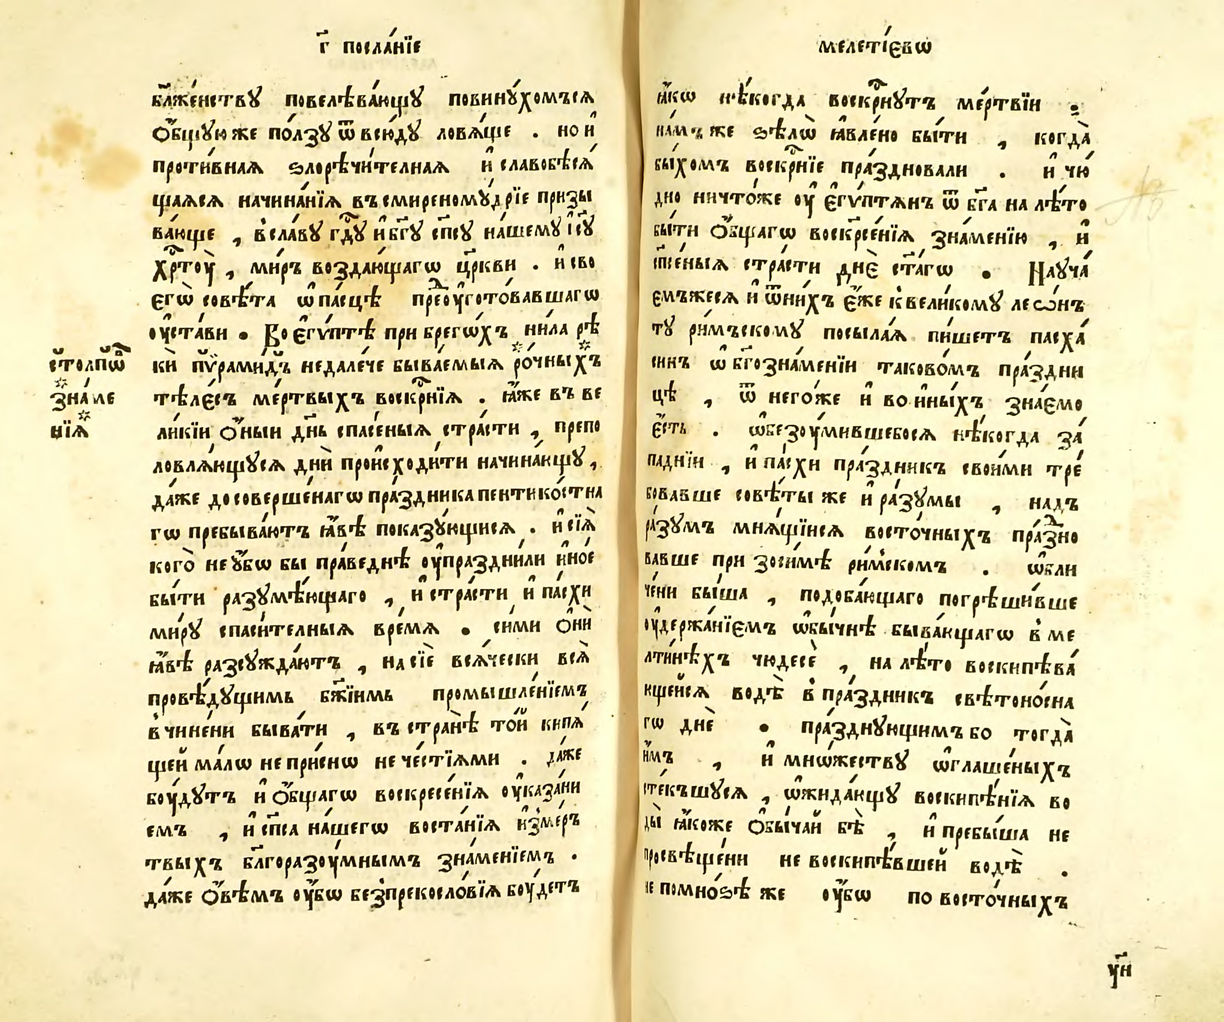 г҃ посла́нїе
бл҃же́нствꙋ повелѣва́ющꙋ повинꙋ́хомъсѧ
ѻ҆́бщꙋюже по́лзꙋ ѿвсю́дꙋ ловѧ́ще . но и҆
проти́внаѧ ѕлорѣчи́телнаѧ и҆ славобѣсѧ́
щаѧсѧ начина́нїѧ въсмиреномꙋ́дрїе призы
ва́юще , в̾сла́вꙋ гд҇ꙋ и҆бг҃ꙋ сп҃сꙋ на́шемꙋ і҆с҃ꙋ
хр҇тоу̀ , ми́ръ воздаю́щагѡ цр҃кви . и҆ сво
егѡ̀ совѣ́та ѡ҆па́сцѣ прео̀уготова́вшагѡ
оу҆ста́ви . Во є҆гѵ́птѣ при брегѡ́хъ ни́ла рѣ
ки́ пѷрами́дъ недале́че быва́емыѧ ро́чныхъ
тѣле́съ ме́ртвыхъ воскр҇нїѧ . ꙗ҆́же въ ве
ли́кїи ѻ҆́ныи дн҃ь спасе́ныѧ стра́сти , препо
ловлѧ́ющꙋсѧ дни̑ происходи́ти начина́ющꙋ ,
да́же досоверше́нагѡ пра́здника пентико́стна
гѡ пребыва́ютъ ꙗ҆́вѣ показꙋ́ющисѧ . и҆ сїѧ̀
кого̀ не ᲂу҆́бѡ бы пра́веднѣ оу҆праздни́ли и҆но́е
бы́ти разꙋмѣ́ющаго , и҆ стра́сти и҆ па́схи
ми́рꙋ спаси́телныѧ вре́мѧ . си́ми ѻ҆ни̑
ꙗ҆́вѣ разсꙋжда́ютъ , на сїѐ всѧ́чески всѧ̑
провѣ́дꙋщимь бж҃їимь промышле́нїемъ
в̾чине́ни быва́ти , въ странѣ̀ то́й кипѧ́
щей ма́лѡ не при́снѡ нече́стїѧми . да́же
бо́удꙋтъ и҆ ѻ҆́бщагѡ воскресе́нїѧ о̀ука́зани
емъ , и҆ сп҃са на́шегѡ воста́нїѧ и҆зме́ръ
твыхъ бл҃горазо́умнымъ зна́менїемъ .
да́же ѻ҆́вѣмъ о̀у́бѡ безпрекосло́вїѧ бо́удетъ
стⷪ҇лпѡⷡ҇
зна́ме
нїѧ
мелетїєвѡ
ꙗ҆́кѡ нѣ́когда воскр҇нꙋтъ ме́ртвїи :
на́мъ же ѕѣлѡ̀ ꙗ҆вле́но бы́ти , когда̀
бы́хомъ воскр҇нїе пра́здновали . и҆ чю́
дно ничто́же оу҆ є҆гѵ́птѧнъ ѿ бг҃а на лѣ́то
бы́ти ѻ҆́бщагѡ воскресе́нїѧ зна́менїю , и҆
сп҃се́ныѧ стра́сти днѐ ст҃агѡ . Наꙋча́
емъжесѧ и҆ ѿни́хъ є҆́же к̾вели́комꙋ леѡ́нъ
тꙋ ри́мъскомꙋ посыла́ѧ пи́шетъ пасха
синъ ѡ бг҃озна́менїи таково́мъ пра́здни
цѣ , ѿ него́же и҆ во и҆ны́хъ зна́емо
є҆́сть . ѡ҆безо́умившебосѧ нѣ́когда за́
паднїи , и҆ па́схи пра́здникъ свои́ми тре́
бовавше совѣ́ты же и҆ ра́зꙋмы , надъ
ра́зꙋмъ мнѧ́щїисѧ восто́чныхъ пра́зно
вавше при зоси́мѣ ри́мскомъ . ѡ҆бли
че́ни бы́ша , подоба́ющаго погрѣши́вше
оу҆держа́нїемъ ѡ҆бы́чнѣ быва́ющагѡ в̾ ме
лти́нѣхъ чюдесѐ , на лѣ́то воскипѣва́
ющейсѧ водѣ̀ в̾ пра́здникъ свѣтоно́сна
гѡ днѐ . пра́зднꙋющимъ бо тогда̀
и҆̀мъ , и҆ мно́жествꙋ ѡ҆глаше́ныхъ
сте́къшꙋсѧ , ѡ҆жида́ющꙋ воскипѣ́нїѧ во
ды̀ ꙗ҆́коже ѻ҆бы́чай бѣ̀ , и҆ пребы́ша не
просвѣще́ни не воскипѣ́вшей водѣ̀ .
не помно́ѕѣ же оу҆́бѡ по восто́чныхъ
у҃н